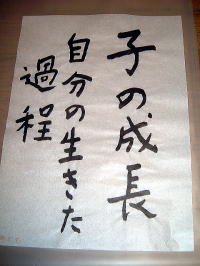 子の成長
自分の生きた
過程